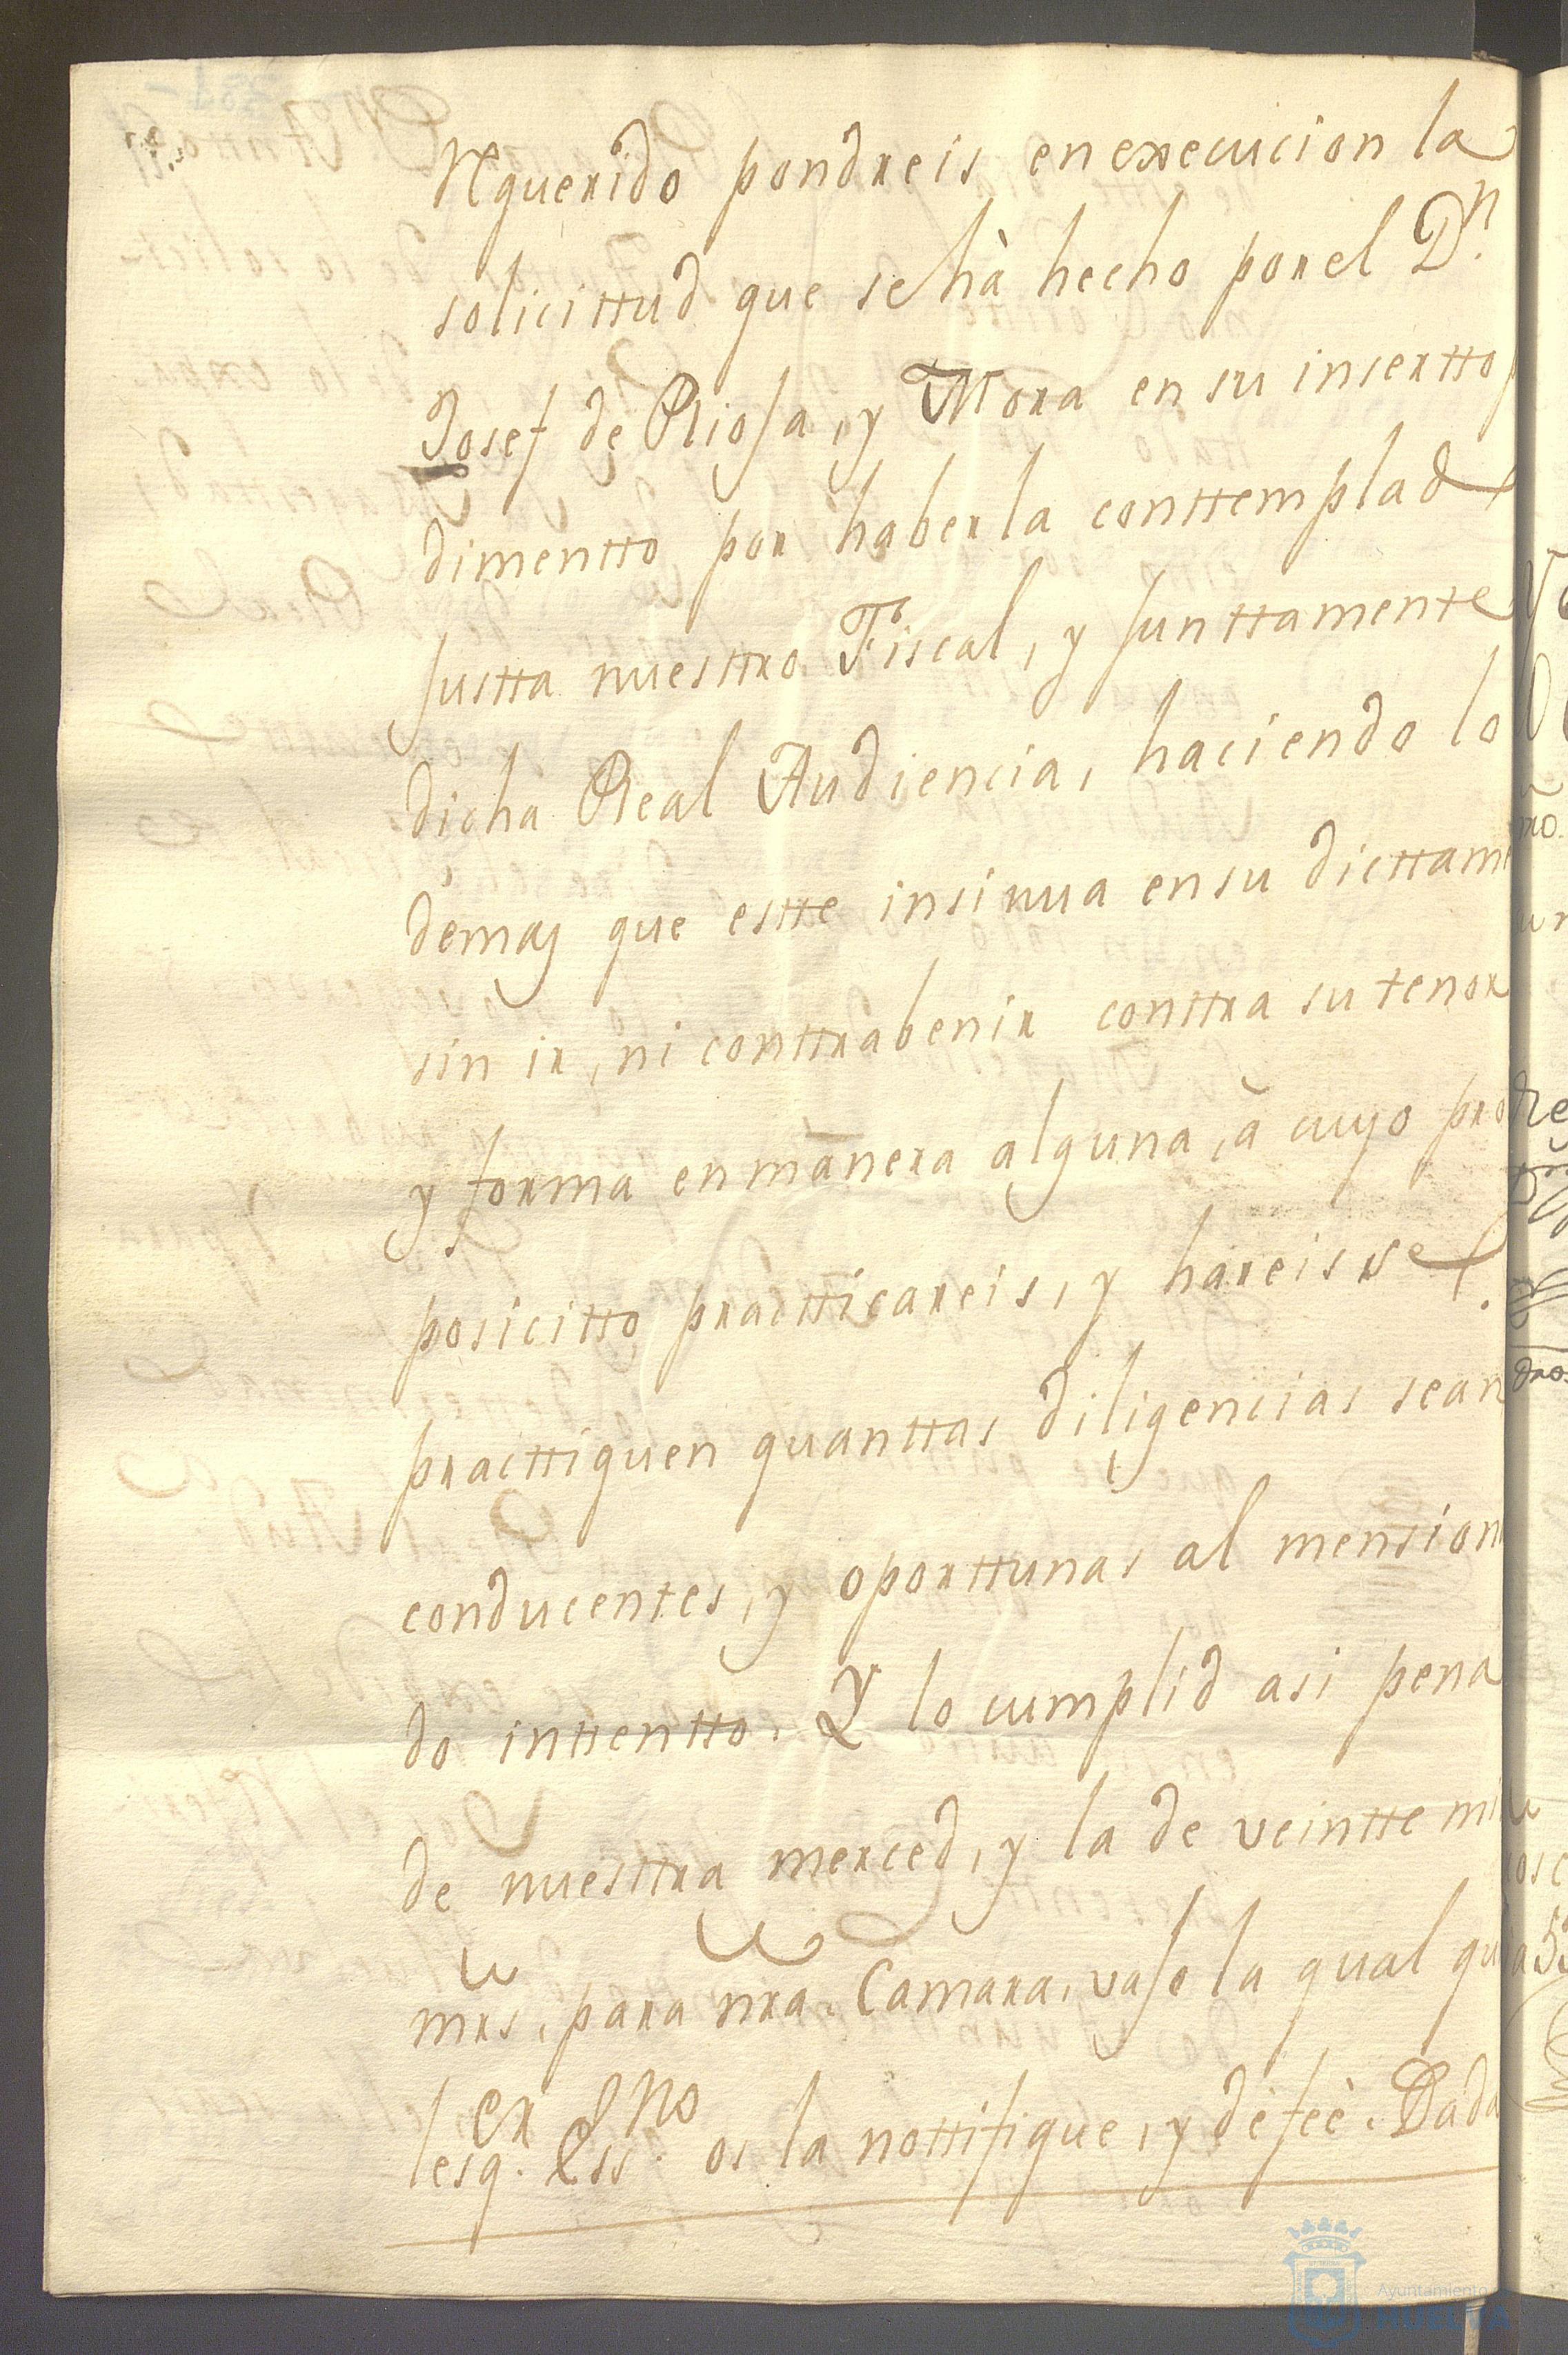 Requerido pondreis en execucion la
solicittud que se hà hecho por el Dn.
Josef de Riosa, y Mora en su insertto
dimentto por haberla conttemplad
justta nuesttro Fiscal, y junttamente
dicha Real Audiencia, haciendo lo
demas que estte insinua en su dicttam
sin ir, ni conttrabenir conttra su tenor
y forma en manera alguna, à cuyo pro
posicitto practticareis, y hareis se
practtiquen quanttas diligencias sean
conducentes, y oporttunas al mension
do inttentto. Y lo cumplid asi pena
de nuesttra merced, y la de veintte mil
mrs. para nra. Camara, vajo la qual qu
lesqer. Essno. os la nottifique, y de feè. Dada
Ayuntamiento
HUELVA